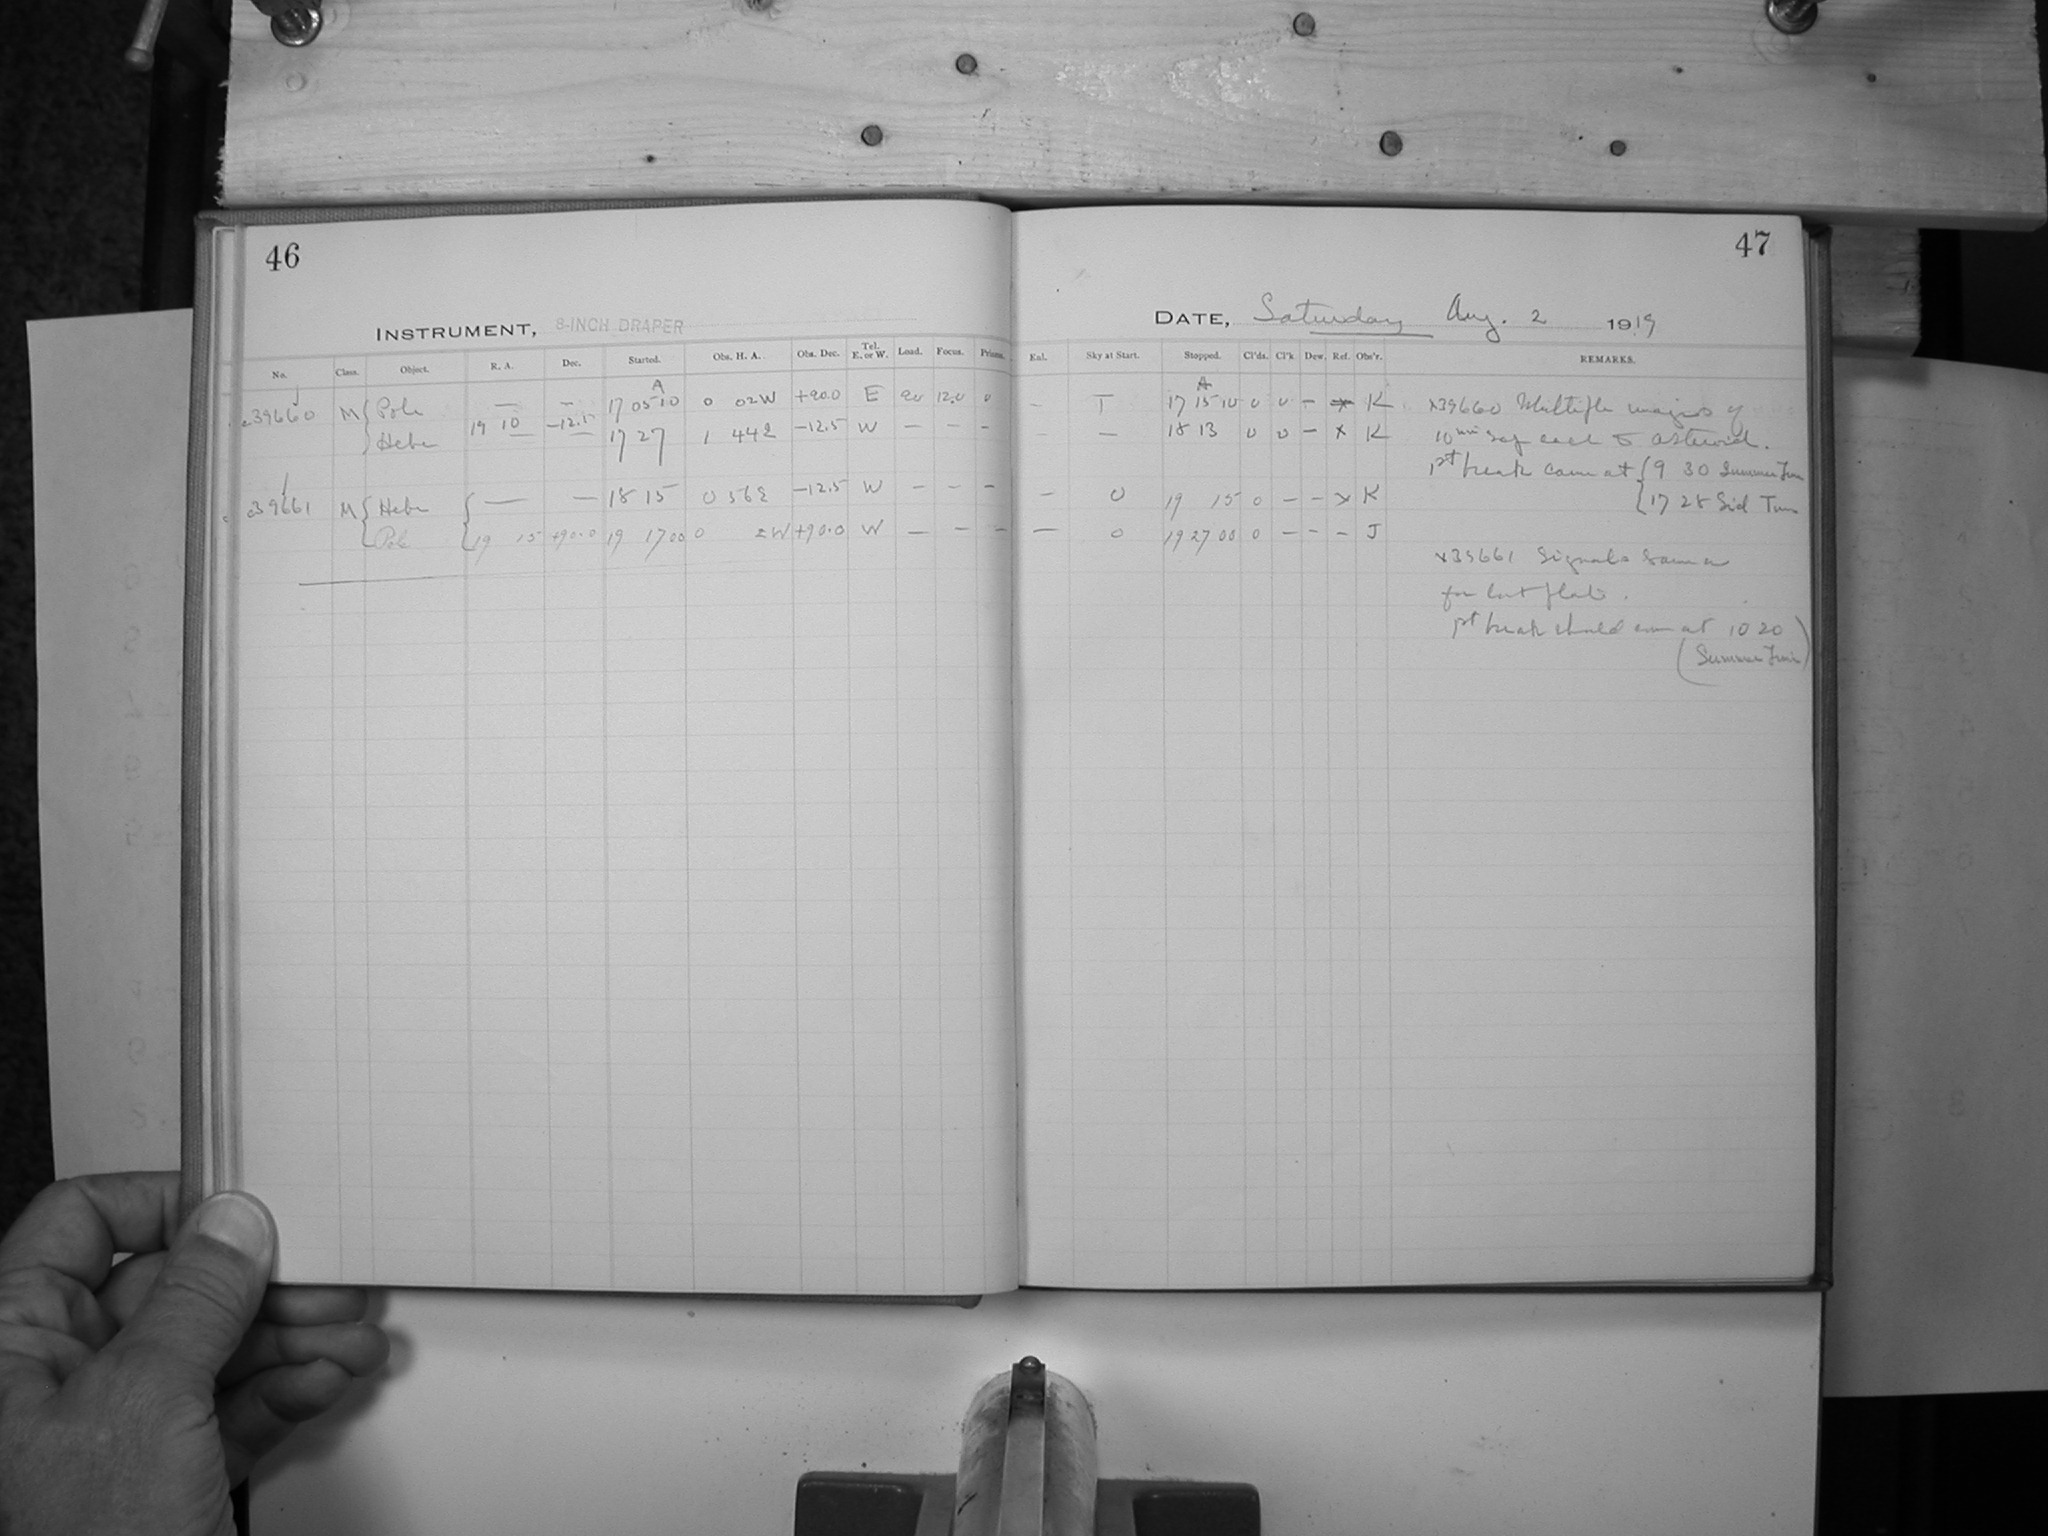 46
INSTRUMENT, 8-INCH DRAPER
No. Class. Object. R. A. Dec. Started. Obs. H. A. Obs. Dec. Tel. E. or W. Load. Focus. Prisms.
A
39660 M Pole — — 17 05 10 0 02W +90.0 E 90 12.0 0
Hebe 19 10 -12.5 17 27 1 44E -12.5 W — — —
39661 M Hebe — — 18 15 0 56E -12.5 W — — —
Pole 19 15 +90.0 19 17 00 0 2W +90.0 W — — —
47
DATE, Saturday Aug. 2 1919
Enl. Sky at Start. Stopped. Cl'ds. Cl'k Dew. Ref. Obs'r. REMARKS.
A
— T 17 15 10 0 0 — x K x39660 Multiple images of
— — 18 13 0 0 — x K 10 min each asteroid.
1st break came at 9 30 Summer Time
17 28 Sid Time
— 0 19 15 0 — — x K
— 0 19 27 00 0 — — — J
x39661 Signals same as
for last plate.
1st break should come at 10 20
(Summer Time)